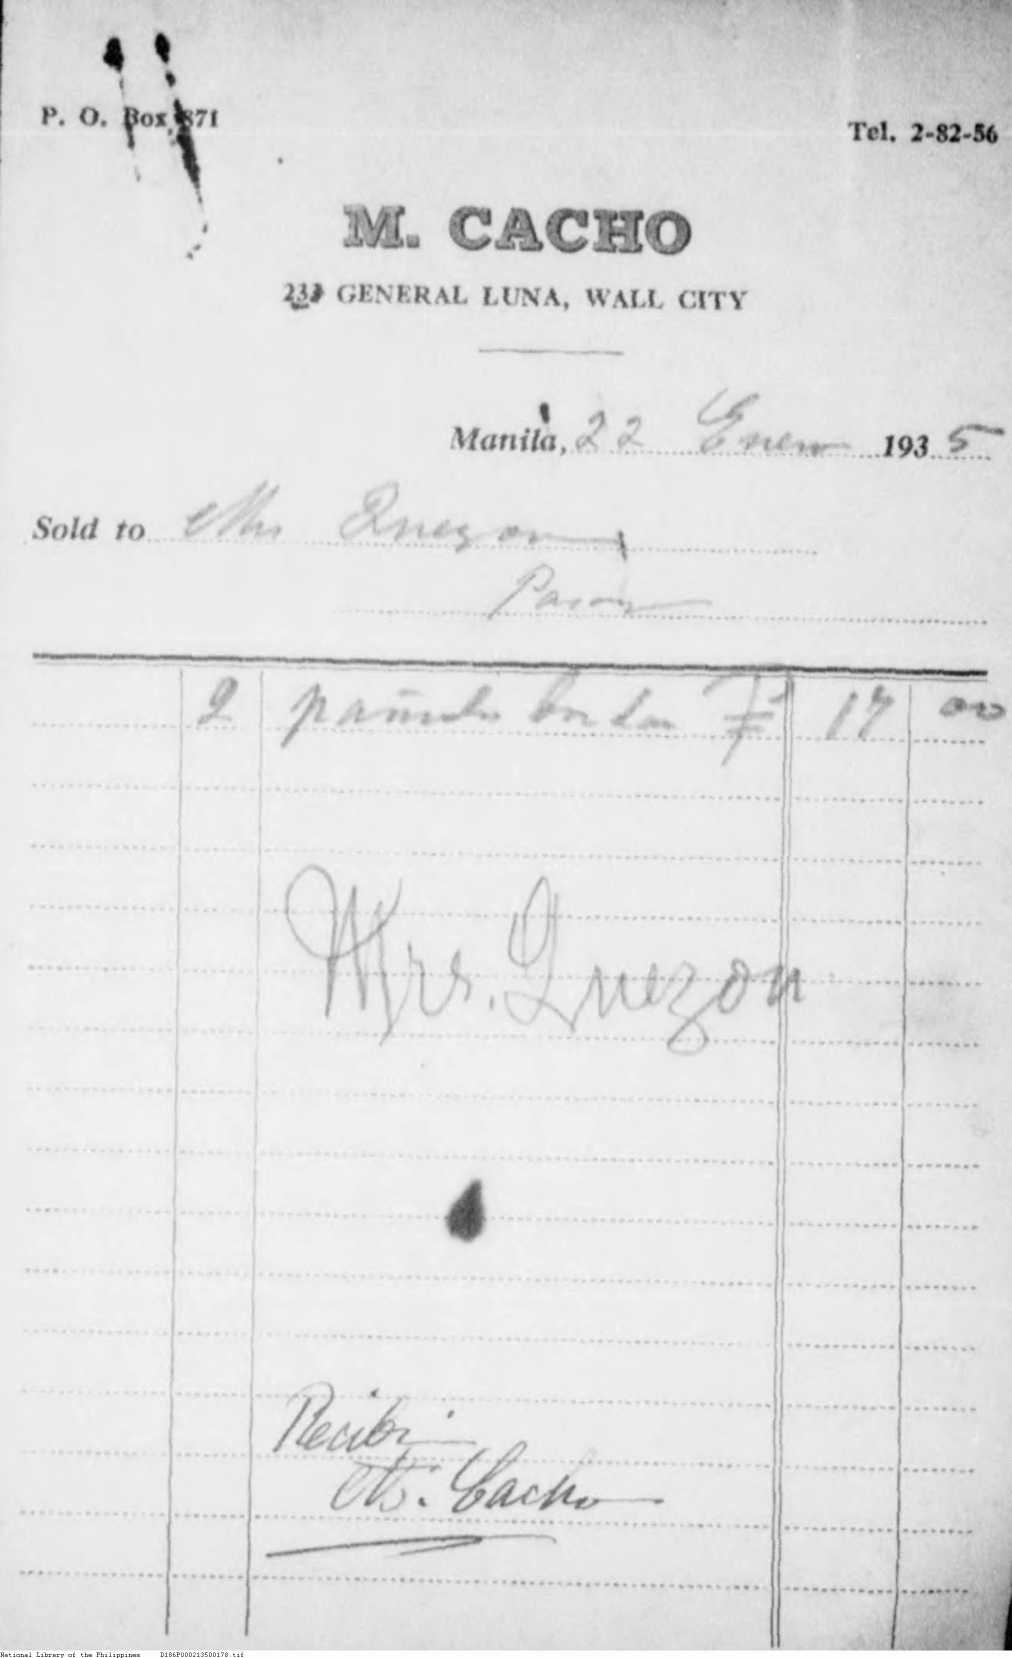 P. O. Box 871
Tel. 2-82-56
M. CACHO
233 GENERAL LUNA, WALL CITY
Manila, 22 Enero 1935
Sold to Mrs Quezon
Pasay
2 pañuelos bordados ₱ 17 00
Mrs. Quezon
Recibi
M. Cacho
National Library of the Philippines D186P000213500178.tif